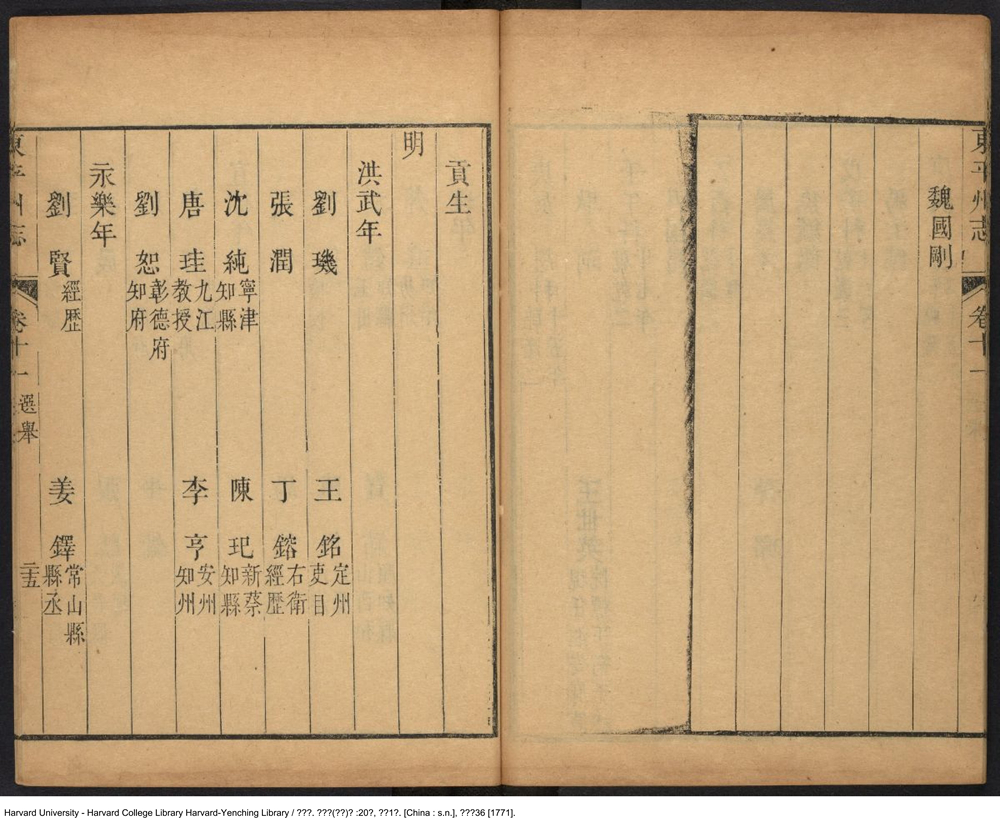 東平州志
卷十一
魏國剛
貢生
明
洪武年
劉璣
王銘 定州吏目
張潤
丁鎔 右衛經歷
沈純 寧津知縣
陳玘 新蔡知縣
唐珪 九江教授
李亨 安州知州
劉恕 彰德府知府
永樂年
劉賢 經歷
姜鐸 常山縣縣丞
東平州志
卷十一
選舉
二五
Harvard University - Harvard College Library Harvard-Yenching Library / ???. ???(??)? :20?, ??1?. [China : s.n.], ???36 [1771].